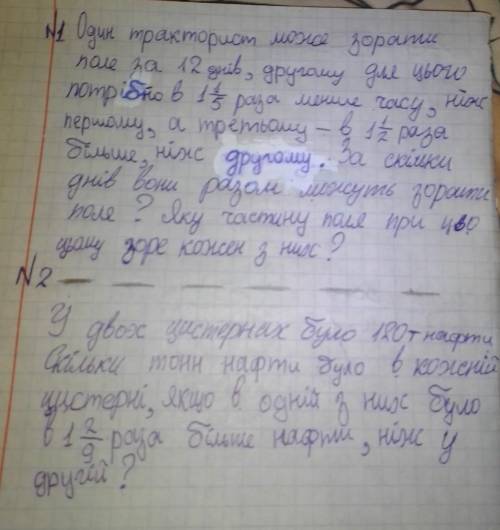 N1 Один тракторист може зорати
поле за 12 днів, другому для цього
потрібно в 1 1/5 раза менше часу, ніж
першому, а третьому – в 1 1/2 раза
більше, ніж другому. За скільки
днів вони разом можуть зорати
поле? Яку частину поля при цьо
цьому зоре кожен з них?
N2
У двох цистернах було 120т нафти
Скільки тонн нафти було в кожній
цистерні, якщо в одній з них було
в 1 2/9 раза більше нафти, ніж у
другій?